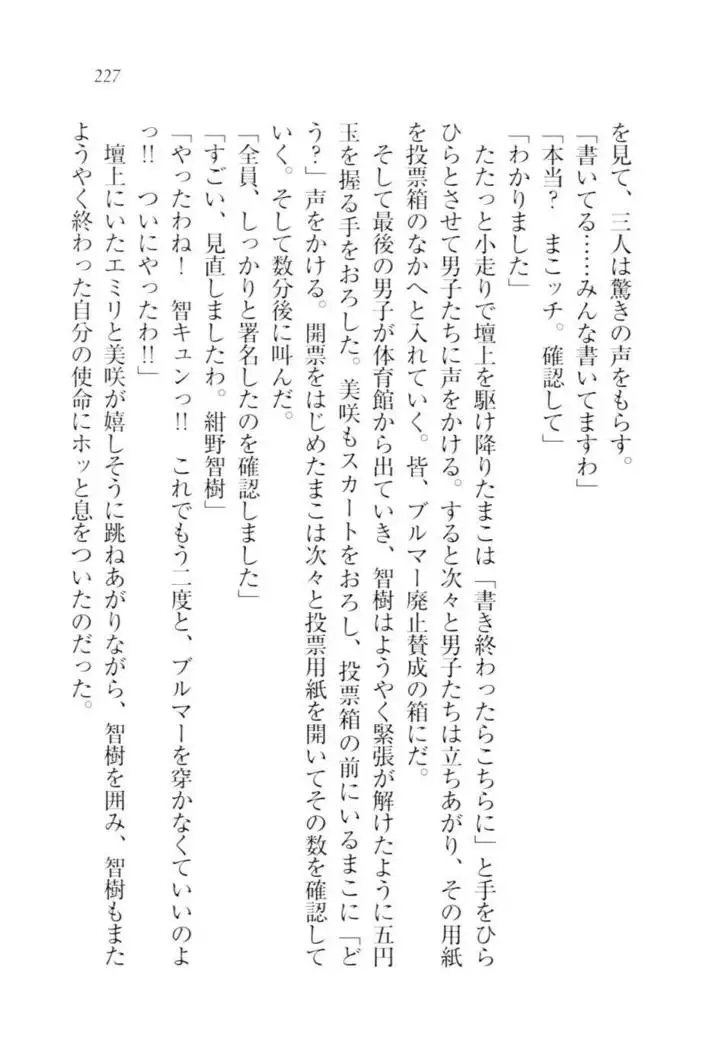 227
を見て、三人は驚きの声をもらす。
「書いてる……みんな書いてますわ」
「本当？　まこッチ。確認して」
「わかりました」
　たたっと小走りで壇上を駆け降りたまこは「書き終わったらこちらに」と手をひら
ひらとさせて男子たちに声をかける。すると次々と男子たちは立ちあがり、その用紙
を投票箱のなかへと入れていく。皆、ブルマー廃止賛成の箱にだ。
　そして最後の男子が体育館から出ていき、智樹はようやく緊張が解けたように五円
玉を握る手をおろした。美咲もスカートをおろし、投票箱の前にいるまこに「ど
う？」声をかける。開票をはじめたまこは次々と投票用紙を開いてその数を確認して
いく。そして数分後に叫んだ。
「全員、しっかりと署名したのを確認しました」
「すごい、見直しましたわ。紺野智樹」
「やったわね！　智キュンっ!!　これでもう二度と、ブルマーを穿かなくていいのよ
っ!!　ついにやったわ!!」
　壇上にいたエミリと美咲が嬉しそうに跳ねあがりながら、智樹を囲み、智樹もまた
ようやく終わった自分の使命にホッと息をついたのだった。